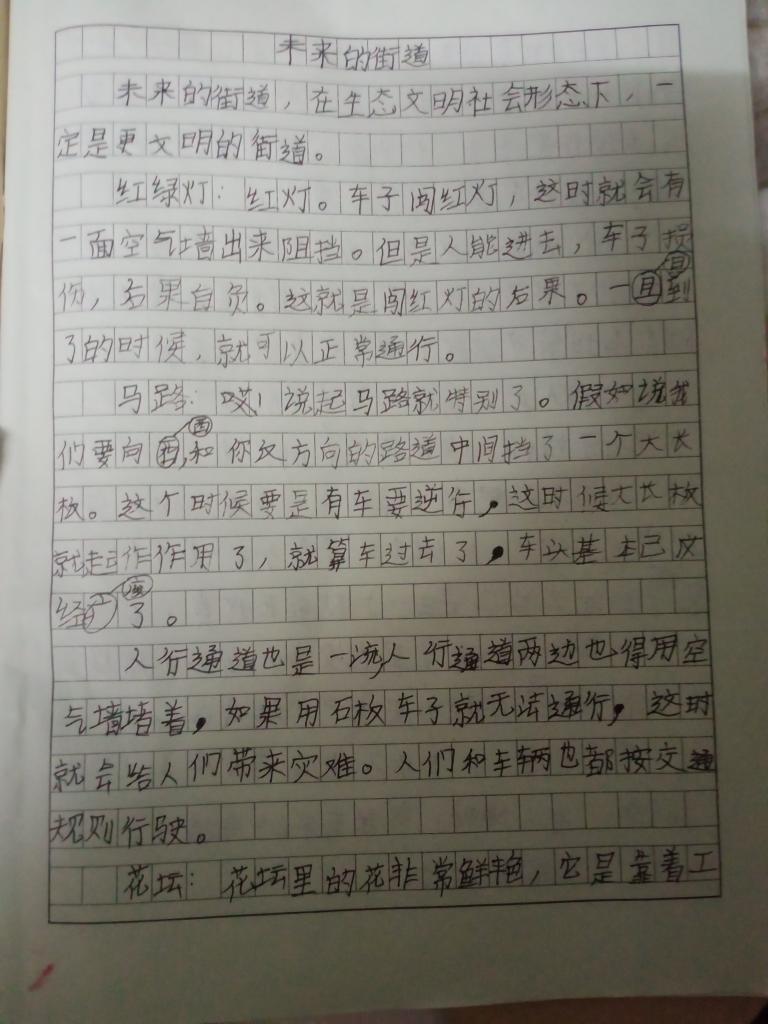 未来的街道
未来的街道，在生态文明社会形态下，一
定是更文明的街道。
红绿灯：红灯。车子闯红灯，这时就会有
一面空气墙出来阻挡。但是人能进去，车子损
伤，后果自负。这就是闯红灯的后果。一旦到
了的时候，就可以正常通行。
马路：哎！说起马路就特别了。假如说我
们要向西,和你反方向的路道中间挡了一个大长
板。这个时候要是有车要逆行，这时候大长板
就起作作用了，就算车过去了，车头基本已
经 了。
人行通道也是一流,人行通道两边也得用空
气墙堵着，如果用石板车子就无法通行，这时
就会给人们带来灾难。人们和车辆也都按交通
规则行驶。
花坛：花坛里的花非常鲜艳，它是靠着工